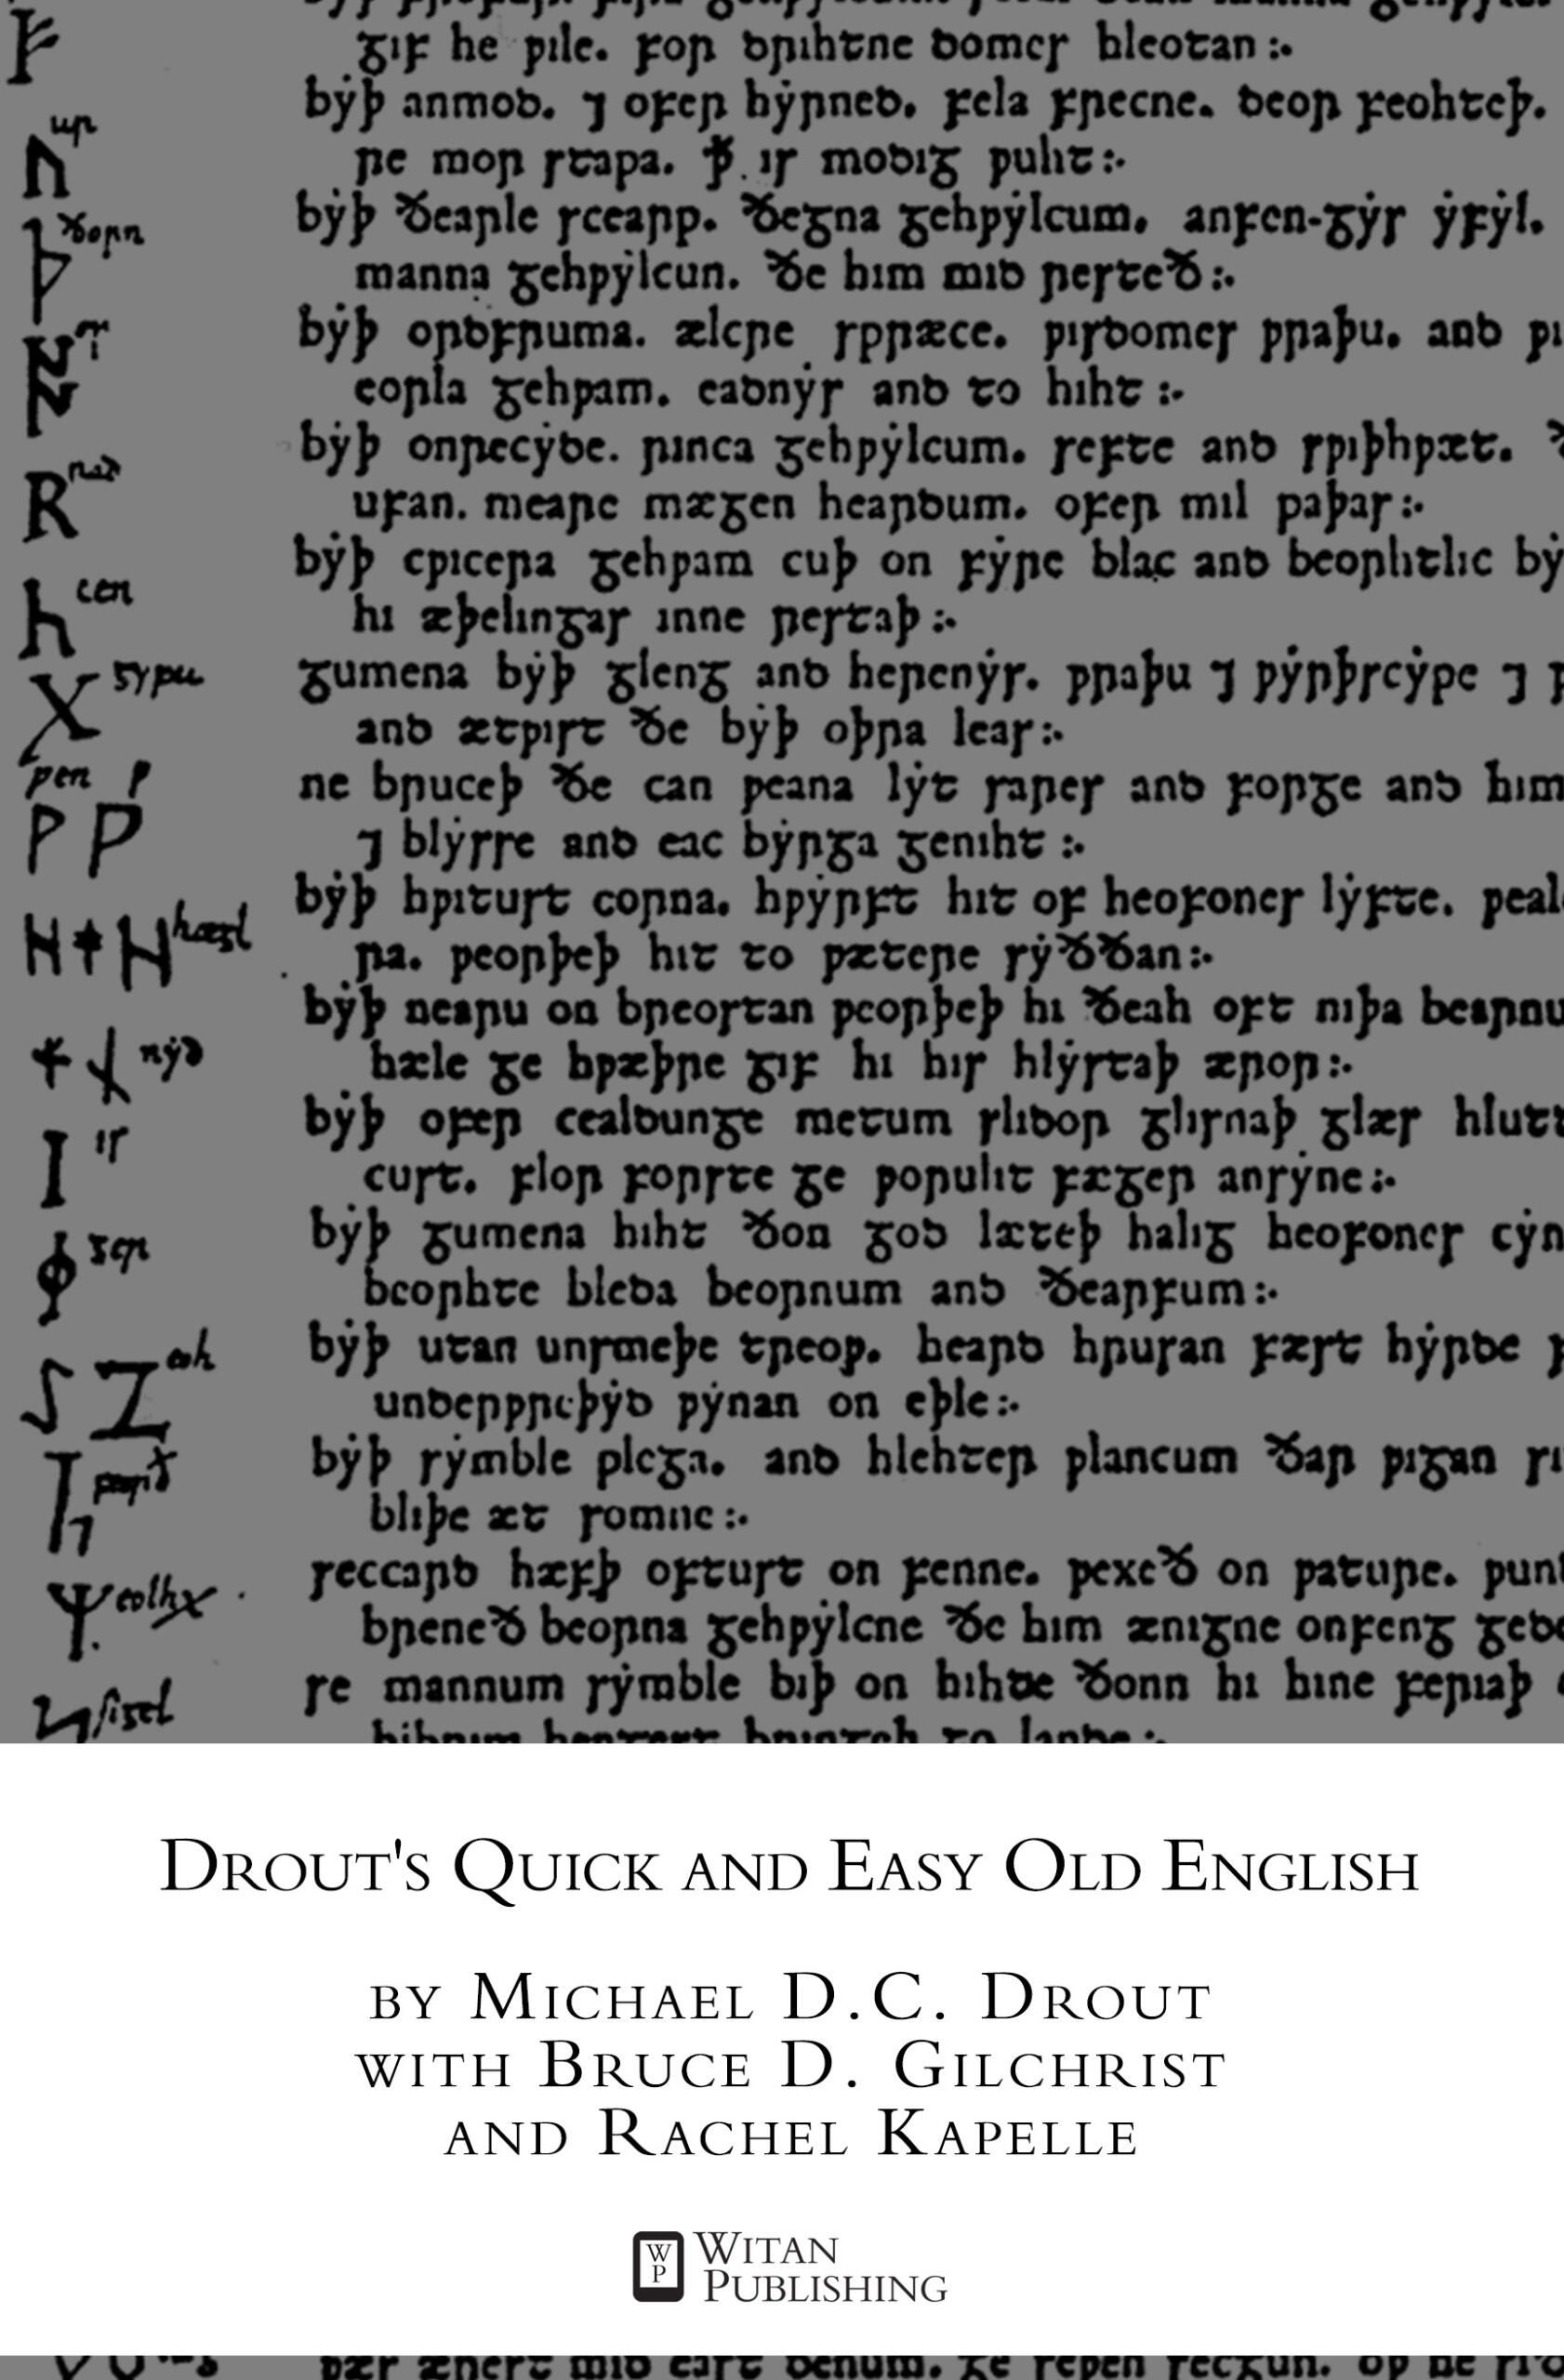 ᚠ
gif he ƿile. for drihtne domes hleotan :.
ᚢ ur
bẏþ anmod. ⁊ ofer hẏrned. fela frecne. deor feohteþ.
re mor stapa. ꝥ. is modig ƿuht :.
ᚦ ðorn
bẏþ ðearle scearp. ðegna gehƿẏlcum. anfen-gẏs ẏfẏl.
manna gehƿẏlcun. ðe him mid resteð :.
os
bẏþ ordfruma. ælcre spræce. ƿisdomes ƿraþu. and ƿi
eorla gehƿam. eadnẏs and to hiht :.
ᚱ rad
bẏþ onrecẏde. rinca gehƿẏlcum. sefte and sƿiþhƿæt.
ufan. meare mægen heardum. ofer mil paþas :.
cen
bẏþ cƿicera gehƿam cuþ on fẏre blac and beorhtlic bẏ
hi æþelingas inne restaþ :.
ᚷ gẏfu
gumena bẏþ gleng and herenẏs. ƿraþu ⁊ ƿẏrþscẏpe ⁊
and ætƿist ðe bẏþ oþra leas :.
ƿen ƿ
ᚹ ᚹ
ne bruceþ ðe can ƿeana lẏt sares and sorge and him
⁊ blẏsse and eac bẏrga geniht :.
ᚻ ᚻ hægl
bẏþ hƿitust corna. hƿẏrft hit of heofones lẏfte. ƿeal
ra. ƿeorþeþ hit to ƿætere sẏððan :.
ᚾ ᚾ nẏd
bẏþ nearu on breostan ƿeorþeþ hi ðeah oft niþa bearnu
hæle ge hƿæþre gif hi his hlẏstaþ æror :.
ᛁ is
bẏþ ofer cealdunge metum slidor glisnaþ glæs hlutt
cust. flor forste ge ƿoruht fæger ansẏne :.
ger
bẏþ gumena hiht ðon god læteþ halig heofones cẏn
beorhte bleda beornum and ðearfum :.
eoh
bẏþ utan unsmeþe treoƿ. heard hrusan fæst hẏrde
underƿreþẏd ƿẏnan on eþle :.
peorð
bẏþ sẏmble plega. and hlehter ƿlancum ðar ƿigan
bliþe æt somne :.
eolhx
seccard hæfþ oftust on fenne. ƿexeð on ƿature.
breneð beorna gehƿẏlcne ðe him ænigne onfeng
sigel
se mannum sẏmble biþ on hihte ðonn hi hine feriaþ
Drout's Quick and Easy Old English
by Michael D.C. Drout
with Bruce D. Gilchrist
and Rachel Kapelle
W
P
Witan
Publishing